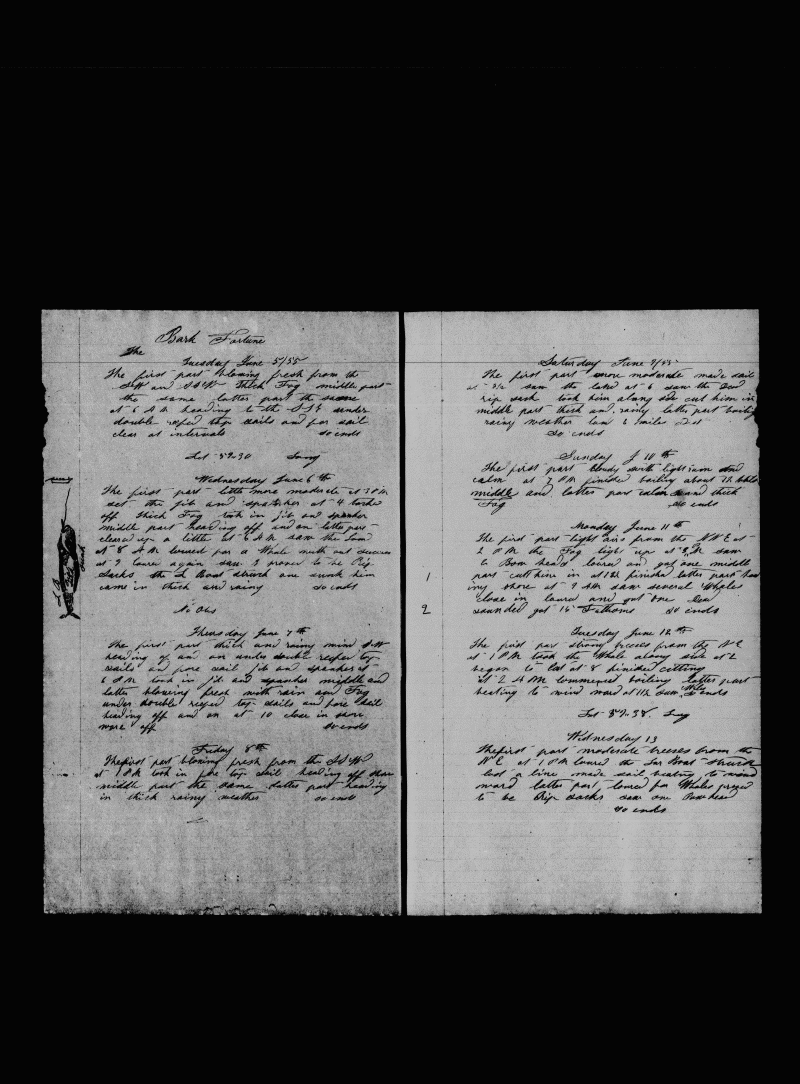 Bark Fortune
The
Tuesday June 5/55
The first part blowing fresh from the
SW and SSW Thick Fog middle part
the same latter part the same
at 6 AM heading to the under
double reefed top sails and for sail
clear at intervals so ends
Lat 59-30 Long
Wednesday June 6th
The first part little more moderate at 3 PM
set the jib and spanker at 4 tacked
off thick Fog took in jib and spanker
middle part heading off and on latter part
cleared up a little at 6 AM saw the land
at 8 AM lowered for a Whale without success
at 9 lowered again saw 3 proved to be Rip
Sacks the L Boat struck one sunk him
came in thick and rainy so ends
No Obs
Thursday June 7th
The first part thick and rainy wind SW
heading off and on under double reefed top
sails and fore sail jib and spanker at
6 PM took in jib and spanker middle and
latter blowing fresh with rain and Fog
under double reefed top sails and fore sail
heading off and on at 10 close in shore
wore off so ends
Friday 8th
The first part blowing fresh from the SSW
at 1 PM took in fore top sail heading off shore
middle part the same latter part heading
in thick rainy weather so ends
Saturday June 9/55
The first part more moderate made sail
at 3 1/2 saw the land at 6 saw the dead
rip sack took him along side cut him in
middle part thick and rainy latter part boiling
rainy weather land 2 miles dist
so ends
Sunday J 10th
The first part cloudy with light rain and
calm at 7 PM finished boiling about 75 bbls
middle and latter part calm and thick
Fog so ends
Monday June 11th
The first part light airs from the NNE at
2 PM the Fog light up at 3 PM saw
6 Bow heads lowered and got one middle
part cutt him in at 12 finished latter part
ing shore at 9 AM saw several Whales
1
close in lowered and got one
2
sounded got 14 Fathoms so ends
Tuesday June 12th
The first par strong breezes from the NE
at 1 PM took the Whale along side at 2
began to cut at 8 finished cutting
at 2 AM commenced boiling latter part
beating to wind ward at 11 1/2 saw Whs so ends
Lat 59-38 Long
Wednesday 13
The first part moderate breeses from the
NE at 1 PM lowered the Boat struck
lost a line made sail beating to wind
ward latter part lowered for Whales proved
to be Rip sacks saw one Bowhead
so ends